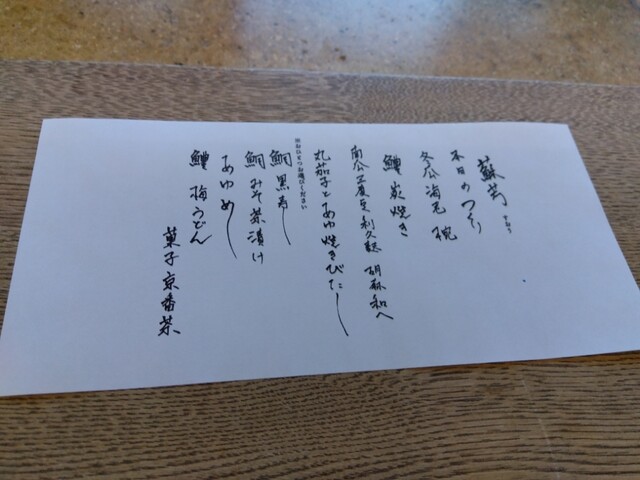 蘇芳 すおう
本日のつくり
冬瓜海老 椀
鱧 炭焼き
南瓜 豆 利久麩 胡麻和へ
丸茄子とあゆ焼きびたし
※おひとつお選びください
鯛 黒寿し
鯛みそ茶漬け
あゆめし
鱧 梅うどん
菓子 京番茶